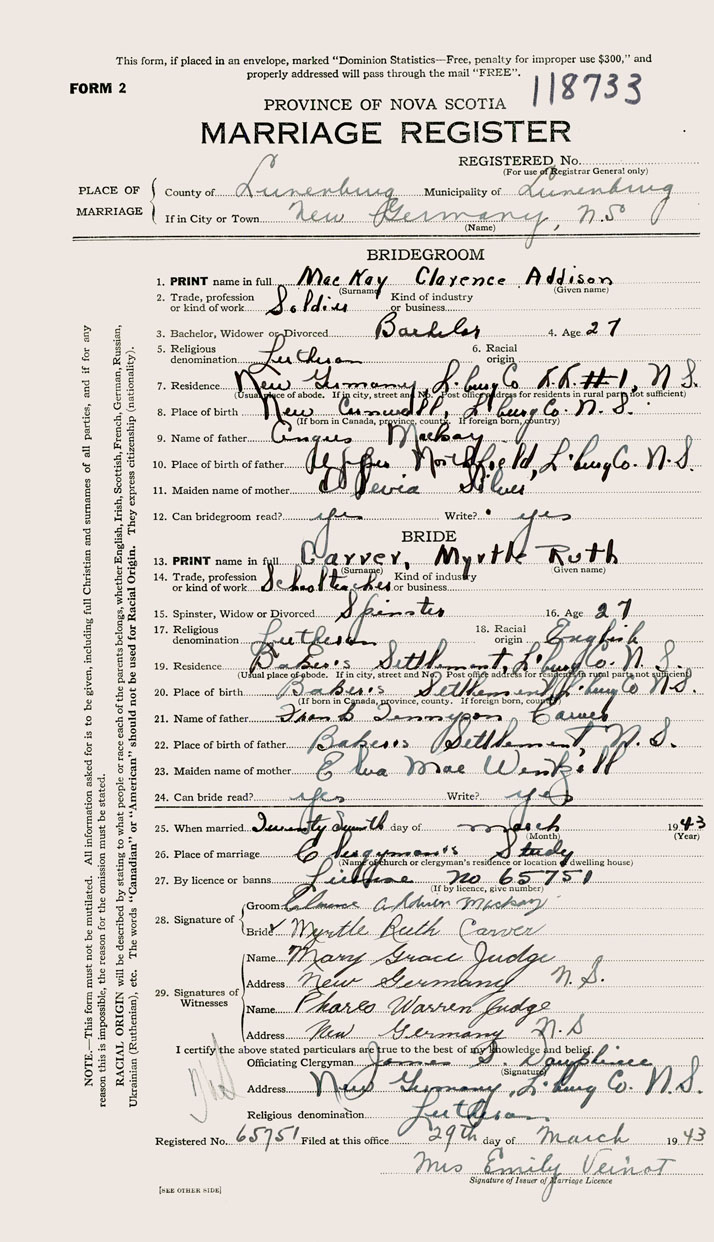 This form, if placed in an envelope, marked "Dominion Statistics—Free, penalty for improper use $300," and
properly addressed will pass through the mail "FREE".
FORM 2
118733
PROVINCE OF NOVA SCOTIA
MARRIAGE REGISTER
REGISTERED No.
(For use of Registrar General only)
PLACE OF MARRIAGE
County of Lunenburg Municipality of Lunenburg
If in City or Town New Germany, N.S
(Name)
BRIDEGROOM
1. PRINT name in full MacKay Clarence Addison
(Surname) (Given name)
2. Trade, profession or kind of work Soldier Kind of industry or business
3. Bachelor, Widower or Divorced Bachelor 4. Age 27
5. Religious denomination Lutheran 6. Racial origin
7. Residence New Germany, L'burg Co R.R. #1, N.S.
(Usual place of abode. If in city, street and No. Post office address for residents in rural parts not sufficient)
8. Place of birth New Cornwall, L'burg Co. N.S.
(If born in Canada, province, county. If foreign born, country)
9. Name of father Angus Mackay
10. Place of birth of father Upper Northfield, L'burg Co. N.S.
11. Maiden name of mother
12. Can bridegroom read? yes Write? yes
BRIDE
13. PRINT name in full Carver, Myrtle Ruth
(Surname) Given name)
14. Trade, profession or kind of work Schoolteacher Kind of industry or business
15. Spinster, Widow or Divorced Spinster 16. Age 27
17. Religious denomination Lutheran 18. Racial origin English
19. Residence Baker's Settlement, L'burg Co. N.S.
(Usual place of abode. If in city, street and No. Post office address for residents in rural parts not sufficient)
20. Place of birth Baker's Settlement, L'burg Co N.S.
(If born in Canada, province, county. If foreign born, country)
21. Name of father Frank Tennyson Carver
22. Place of birth of father Baker's Settlement, N.S.
23. Maiden name of mother Elva Mae Wentzell
24. Can bride read? yes Write? yes
25. When married Twenty day of March 1943
(Month) (Year)
26. Place of marriage Clergyman's Study
(Name of church or clergyman's residence or location of dwelling house)
27. By licence or banns License no 65751
(If by licence, give number)
28. Signature of
Groom Clarence Addison Mackay
Bride Myrtle Ruth Carver
29. Signatures of Witnesses
Name Mary Grace Judge
Address New Germany N.S.
Name Phares Warren Judge
Address New Germany N.S
I certify the above stated particulars are true to the best of my knowledge and belief.
Officiating Clergyman James Dauphinee
(Signature)
Address New Germany, L'burg Co. N.S.
Religious denomination Lutheran
Registered No. 65751 Filed at this office 29th day of March 1943
Mrs Emily Veinot
Signature of Issuer of Marriage Licence
[SEE OTHER SIDE]
NOTE.—This form must not be mutilated. All information asked for is to be given, including full Christian and surnames of all parties, and if for any
reason this is impossible, the reason for the omission must be stated.
RACIAL ORIGIN will be described by stating to what people or race each of the parents belongs, whether English, Irish, Scottish, French, German, Russian,
Ukrainian (Ruthenian), etc. The words "Canadian" or "American" should not be used for Racial Origin. They express citizenship (nationality).